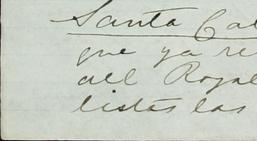 Santa Cal
que ya re
all Royal
listes las